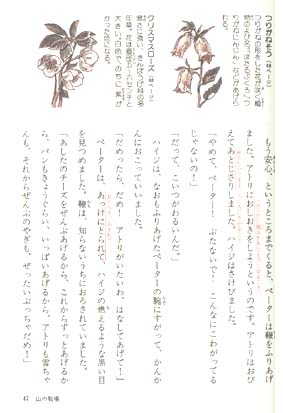 つりがねそう（44ページ）
つりがねの形をした花が咲く植
物のよび名。ほたるぶくろ、つ
りがねにんじん、などがあげら
れる。
クリスマスローズ（44ページ）
寒さに強い、きんぽうげ科の多
年草。花は直径五〜八センチと
大きい。白色で、のちに、紫が
かった色になる。
もう安心、というところまでくると、ペーターは鞭をふりあげ
ました。アトリにおしおきをしようというのです。アトリはおび
えてあとじさりしました。ハイジはさけびました。
「やめて、ペーター！　ぶたないで！　こんなにこわがってる
じゃないの！」
「だって、こいつがわるいんだ。」
ハイジは、なおもふりあげたペーターの腕にすがって、かんか
んにおこっていいました。
「だめったら、だめ！　アトリがいたいわ。はなしてあげて！」
ペーターは、あっけにとられて、ハイジの燃えるような黒い目
を見つめました。鞭は、知らないうちにおろされていました。
「あしたのチーズをぜんぶあげるから、これからずっとあげるか
ら、パンもきょうぐらい、いっぱいあげるから、アトリも雪ちゃ
んも、それからぜんぶのやぎも、ぜったいぶっちゃだめ！」
47　山の牧場